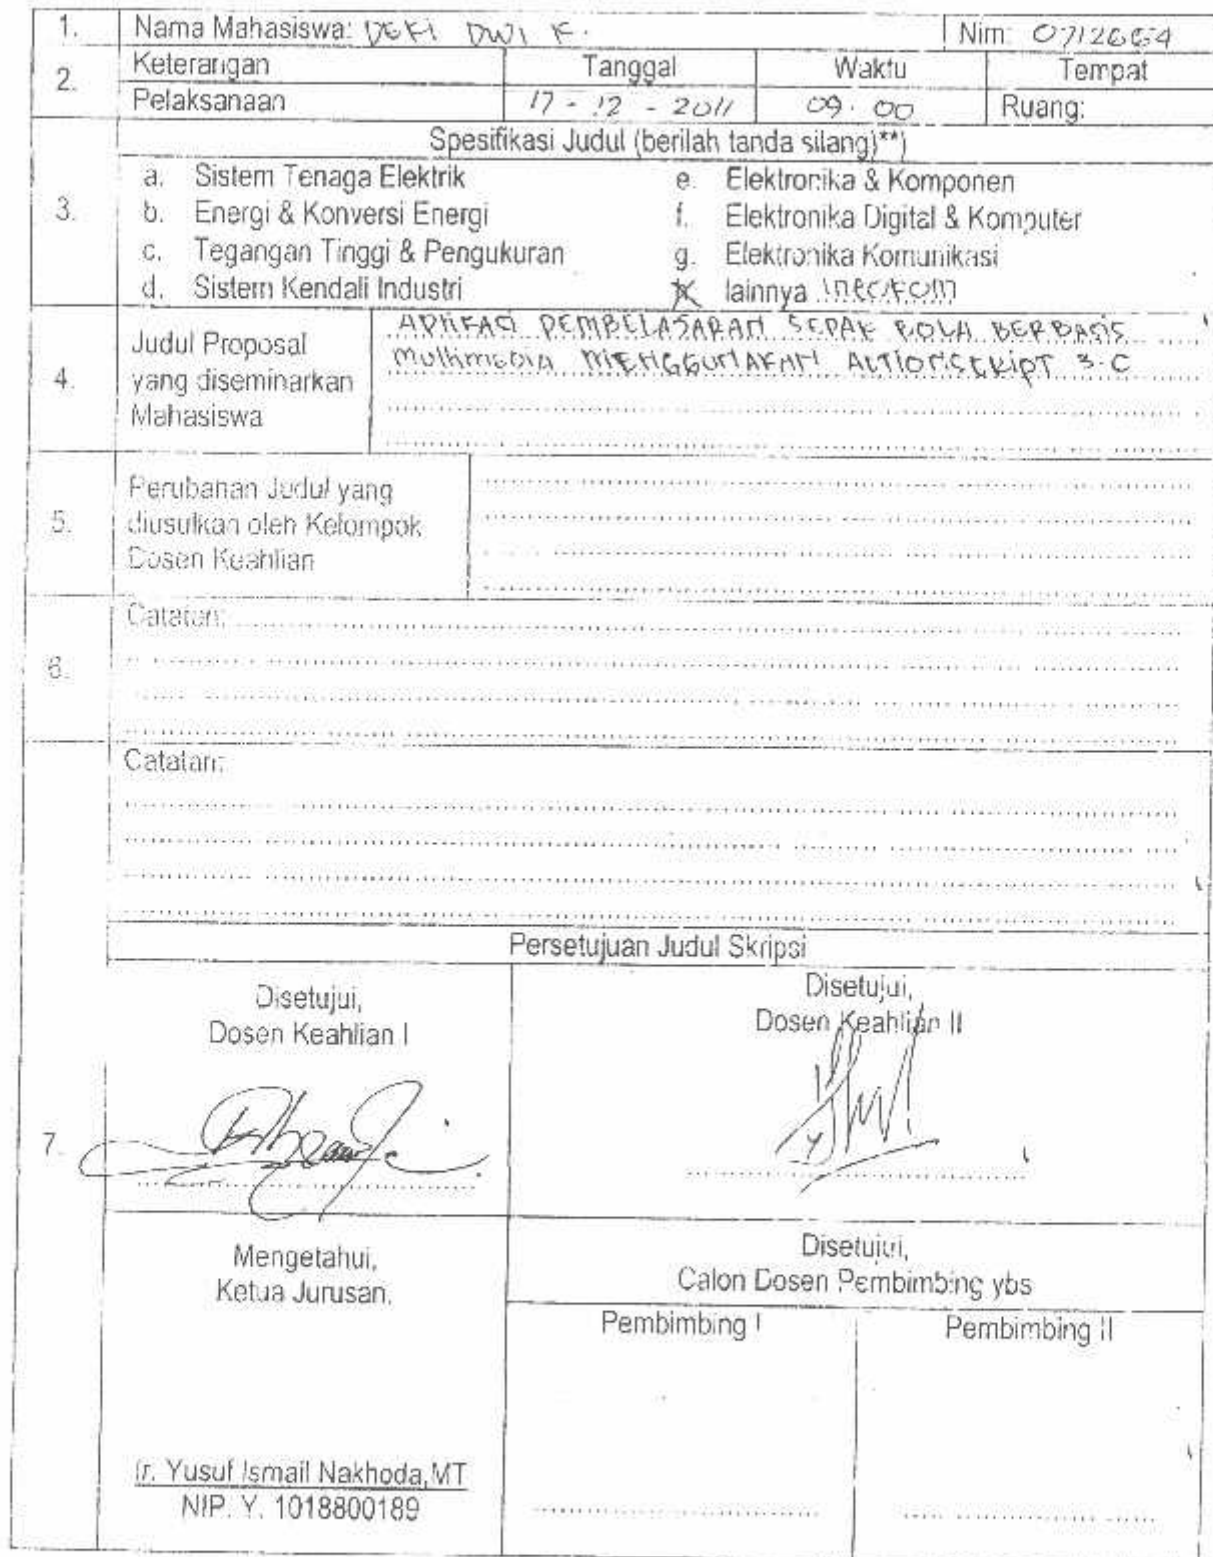 1. Nama Mahasiswa: DEKI DWI K. Nim: 0712664
2. Keterangan Tanggal Waktu Tempat
Pelaksanaan 17 - 12 - 2011 09.00 Ruang:
3. Spesifikasi Judul (berilah tanda silang)**)
a. Sistem Tenaga Elektrik
b. Energi & Konversi Energi
c. Tegangan Tinggi & Pengukuran
d. Sistem Kendali Industri
e. Elektronika & Komponen
f. Elektronika Digital & Komputer
g. Elektronika Komunikasi
lainnya
4. Judul Proposal
yang diseminarkan
Mahasiswa
APLIKASI PEMBELAJARAN SEPAK BOLA BERBASIS
MULTIMEDIA MENGGUNAKAN ACTIONSCRIPT 3.0
5. Perubahan Judul yang
diusulkan oleh Kelompok
Dosen Keahlian
6. Catatan:
Catatan:
Persetujuan Judul Skripsi
7. Disetujui,
Dosen Keahlian I
Disetujui,
Dosen Keahlian II
Mengetahui,
Ketua Jurusan.
Ir. Yusuf Ismail Nakhoda,MT
NIP. Y. 1018800189
Disetujui,
Calon Dosen Pembimbing ybs
Pembimbing I Pembimbing II